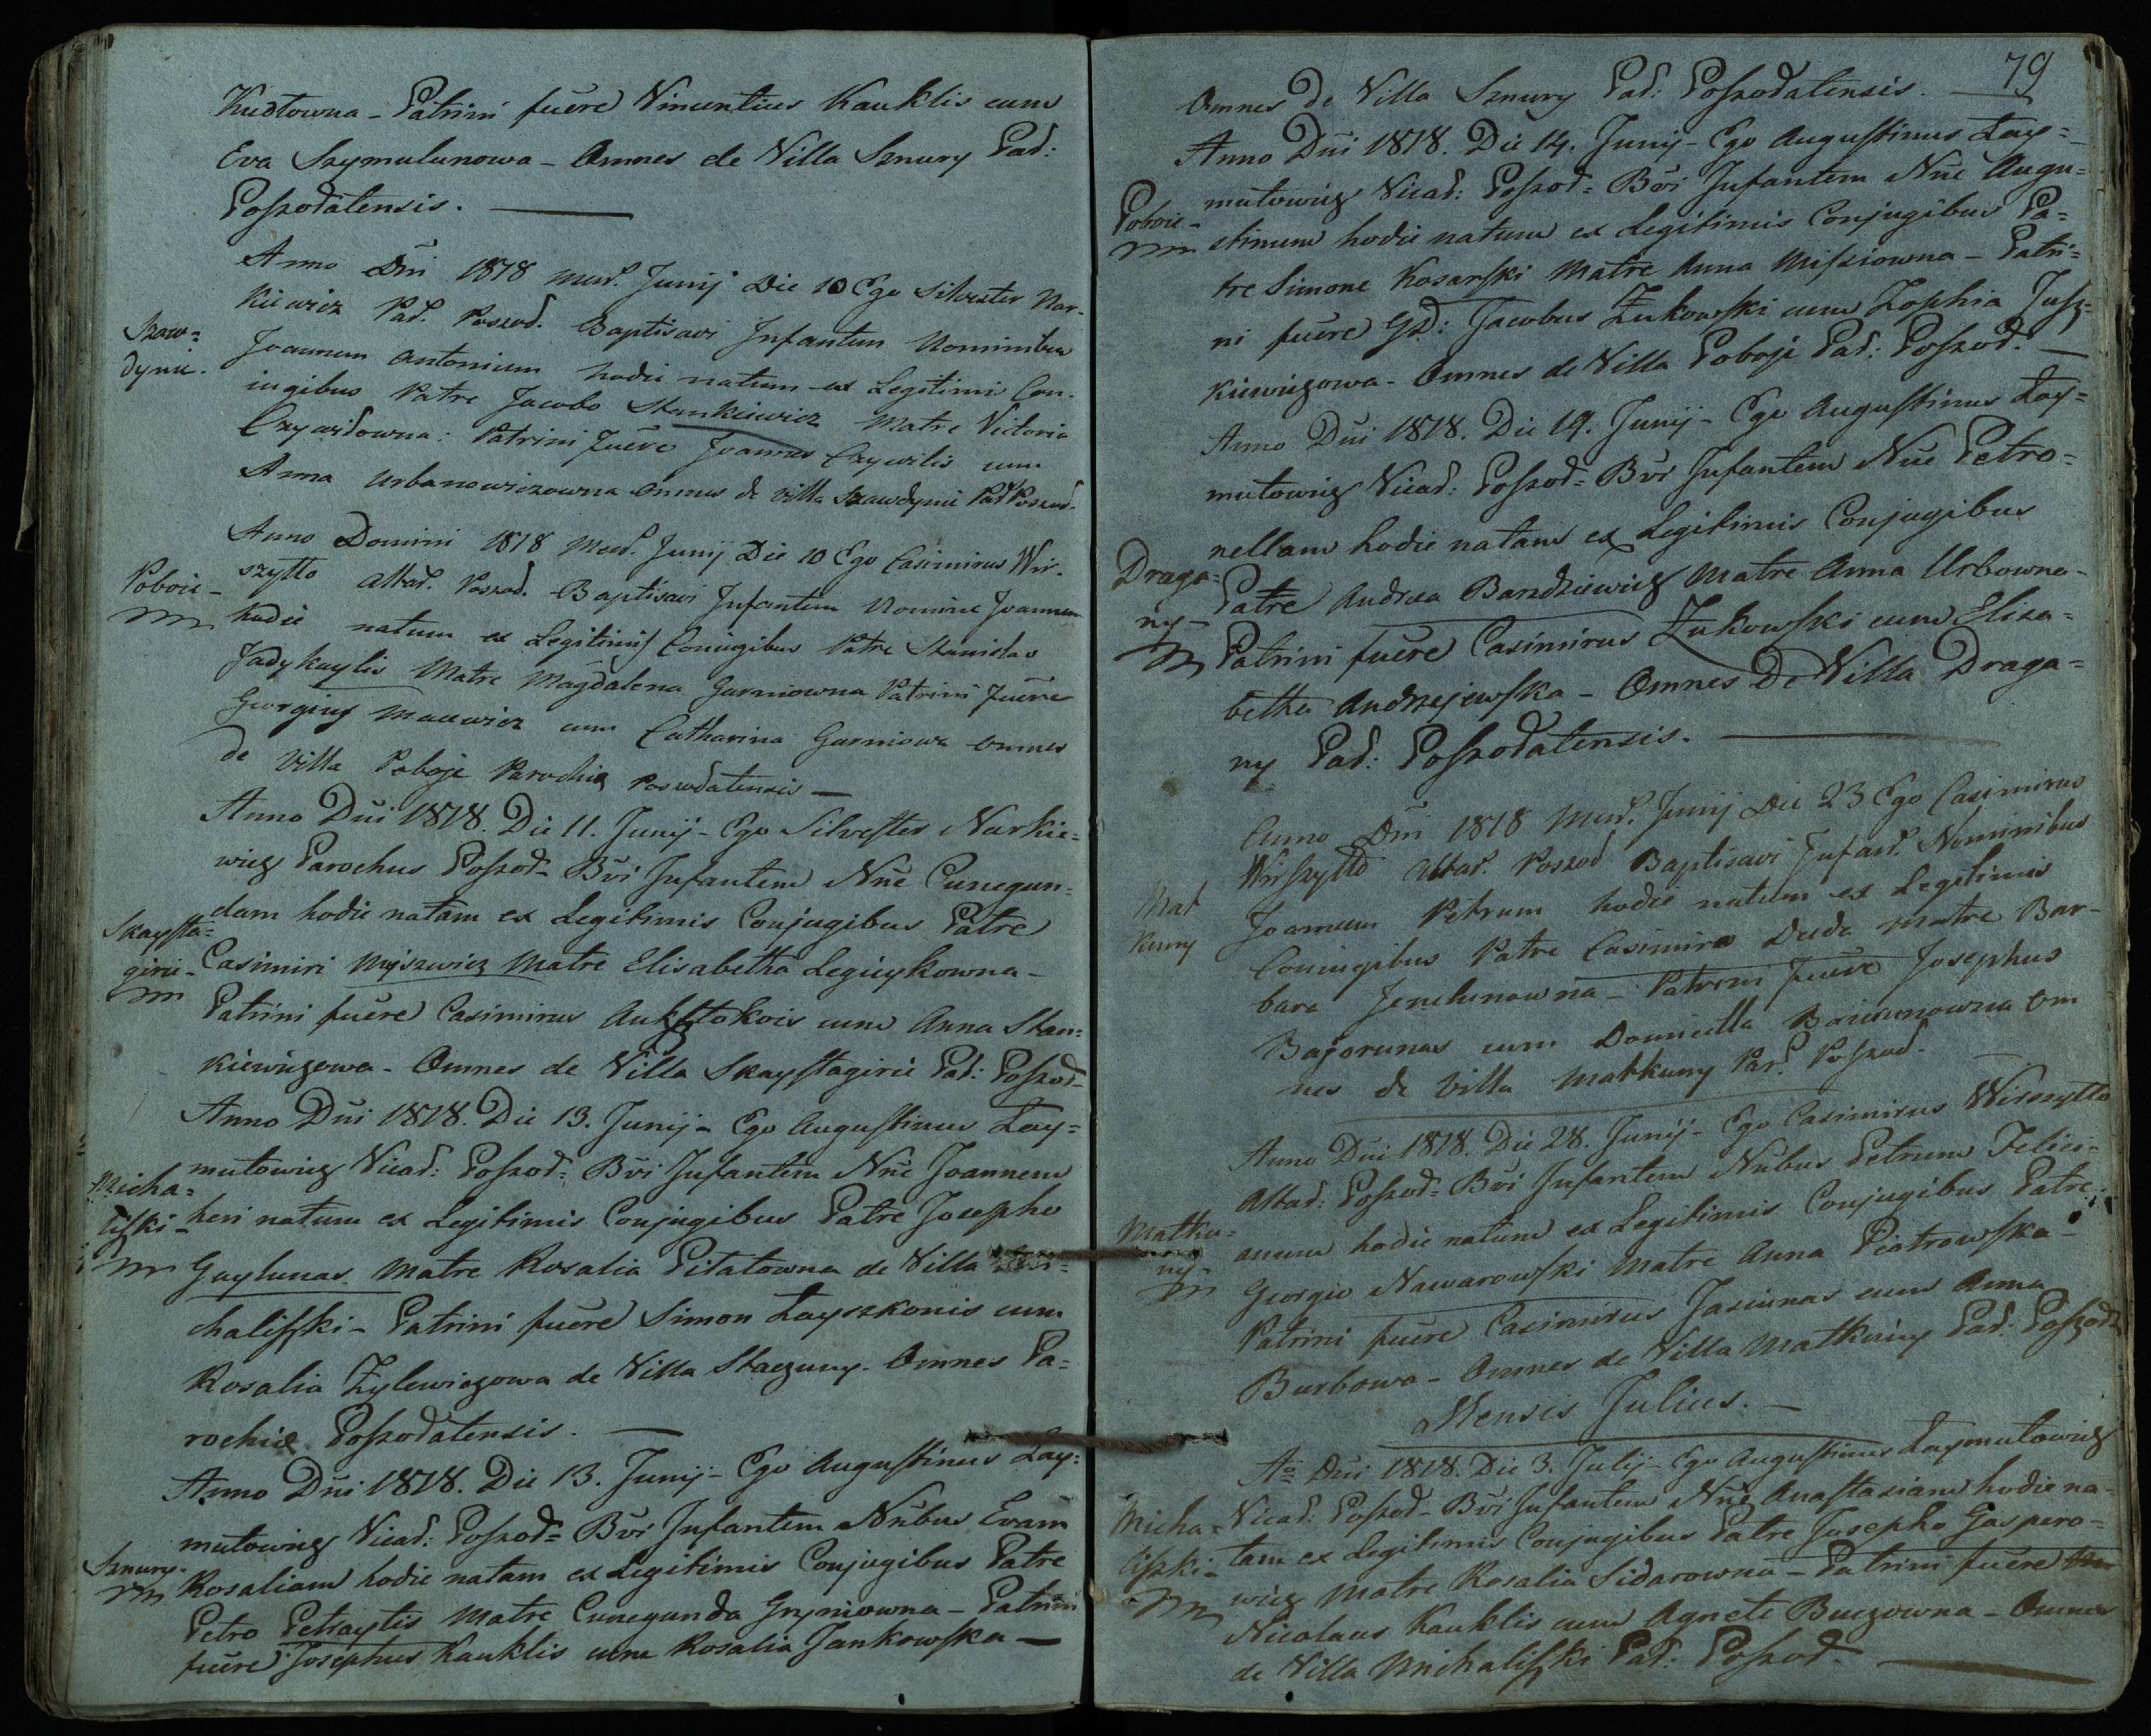 Kudtowna - Patrini fuere Vincentius Kauklis cum
Eva Szymulunowa - Omnes de Villa Sznury Par:
Poszodatensis.
Anno Dni 1818 Mens. Junij Die 10 Ego Silvester Nar-
kiewicz Par. Poszod. Baptisavi Infantem Nominibus
Szaw=
dynie.
Joannem Antonium hodie natum ex Legitimis Con-
iugibus Patre Jacobo Stankiewicz Matre Victoria
Czywilowna: Patrini fuere Joannes Czywilis cum
Anna Urbanowiczowna omnes de villa Szawdynie Par Poszod.
Anno Domini 1818 Mens. Junij Die 10 Ego Casimirus Wir-
szytto Altar. Poszod. Baptisavi Infantem Nomine Joannem
Poboie -
hodie natum ex Legitimis Coniugibus Patre Stanislao
Jadykaylis Matre Magdalena Gurniowna Patrini fuere
Georgius Macewicz cum Catharina Gurniowa omnes
de Villa Poboje Parochiæ Poszodatensis -
Anno Dni 1818. Die 11. Junij - Ego Silvester Narkie=
wicz Parochus Poszod - Bvi Infantem Nne Cunegun=
dam hodie natam ex Legitimis Conjugibus Patre
Skaysta=
girie -
Casimiri Mysewicz Matre Elisabetha Legieykowna -
Patrini fuere Casimirus Auksztokois cum Anna Stan=
kiewiczowa - Omnes de Villa Skaystagirie Par: Poszod -
Anno Dni 1818. Die 13. Junij - Ego Augustinus Lay=
mutowicz Vicar: Poszod = Bvi Infantem Nne Joannem
Micha=
liszki -
heri natum ex Legitimis Conjugibus Patre Josepho
Gaylunas Matre Rosalia Pitatowna de Villa Mi=
chaliszki - Patrini fuere Simon Layszkonis cum
Rosalia Zylewiczowa de Villa Staczuny. Omnes Pa=
rochiæ Poszodatensis. -
Anno Dni 1818. Die 13. Junij - Ego Augustinus Lay=
mutowicz Vicar: Poszod = Bvi Infantem Nnbus Evam
Sznury.
Rosaliam hodie natam ex Legitimis Conjugibus Patre
Petro Petraytis Matre Cunegunda Gryniowna - Patrini
fuere Josephus Kauklis cum Rosalia Jankowska -
79
Omnes de Villa Sznury Par: Poszodatensis.
Anno Dni 1818. Die 14. Junij - Ego Augustinus Lay=
mutowicz Vicar: Poszod = Bvi Infantem Nne Augu=
Poboie -
stinum hodie natum ex Legitimis Conjugibus Pa=
tre Simone Kosarski Matre Anna Misiowna - Patri=
ni fuere GD: Jacobus Zukowski cum Zophia Jusz=
kiewiczowa - Omnes de Villa Poboje Par: Poszod. -
Anno Dni 1818. Die 19. Junij - Ego Augustinus Lay=
mutowicz Vicar: Poszod = Bvi Infantem Nne Petro=
nellam hodie natam ex Legitimis Conjugibus
Draga=
ny -
Patre Andrea Barzdziewicz Matre Anna Urbowna -
Patrini fuere Casimirus Zukowski cum Elisa=
betha Andrzejewska - Omnes de Villa Draga=
ny Par: Poszodatensis.
Anno Dni 1818 Mens. Junij Die 23 Ego Casimirus
Wirszytto Altar. Poszod Baptisavi Infan. Nominibus
Mat
kuny
Joannem Petrum hodie natum ex Legitimis
Coniugibus Patre Casimiro Duda Matre Bar-
bara Jenulunowna - Patrini fuere Josephus
Bajorunas cum Domicella Baiorunowna om
nes de villa Matkuny Par. Poszod.
Anno Dni 1818. Die 28. Junij - Ego Casimirus Wirszytto
Altar: Poszod = Bvi Infantem Nnbus Petrum Felici=
Matku=
ny -
anum hodie natum ex Legitimis Conjugibus Patre
Georgio Nawarowski Matre Anna Piotrowska -
Patrini fuere Casimirus Jasiunas cum Anna
Burbowa - Omnes de Villa Matkuny Par: Poszod
Mensis Julius. -
Ao Dni 1818. Die 3. Julij - Ego Augustinus Laymutowicz
Vicar: Poszod - Bvi Infantem Nne Anastasiam hodie na=
Micha=
liszki -
tam ex Legitimis Conjugibus Patre Josepho Gaspero=
wicz Matre Rosalia Sidarowna - Patrini fuere
Nicolaus Kauklis cum Agnete Buczowna - Omnes
de Villa Michaliszki Par: Poszod.